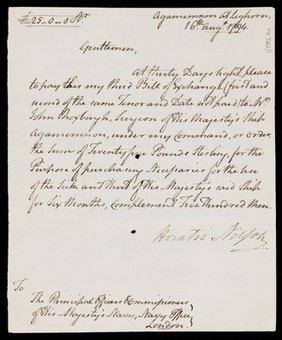 £25-0-0 Str
Agamemnon at Leghorn,
16th Augt 1794.
Gentlemen,
At thirty Days sight, please
to pay this my third Bill of Exchange (first and
second of the same Tenor and Date not paid) to Mr
John Roxburgh, Surgeon of His Majesty's Ship
Agamemnon, under my Command, or order,
the sum of Twenty five Pounds Sterling for the
Purpose of purchasing Necessaries for the Use
of the Sick and Hurt of His Majesty's said Ship
for Six Months, Complement Five Hundred Men
Horatio Nelson
To
The Principal Officers & Commissioners
of His Majesty's Navy, Navy Office
London.